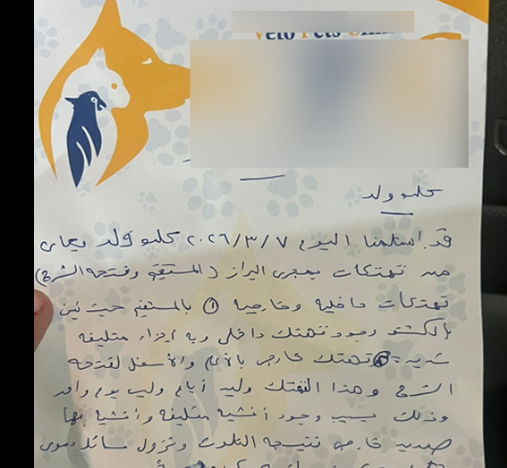 Veto Pets Clinic
كلب ولد
قد استلمنا اليوم ٢٠٢٦/٣/٧ كلب ولد يعاني
من تهتكات بمجرى البراز (المستقيم وفتحة الشرج)
تهتكات داخلية وخارجية ① بالمستقيم حيث تبين
بالكشف وجود تهتك داخلي وبه أجزاء متليفة
شديدة ② تهتك خارجي بالأعلى والأسفل لفتحة
الشرج وهذا التهتك وليد أيام وليس يوم واحد
وذلك بسبب وجود أنسجة متليفة وأنسجة بها
صديد خارجة نتيجة التلوث ونزول سائل دموي